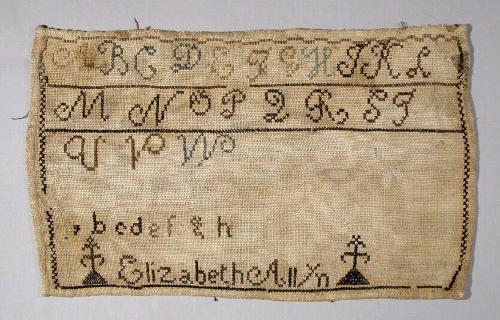 A B C D E F G H I K L
M N O P Q R S T
U V W
a b c d e f g h
Elizabeth Allyn